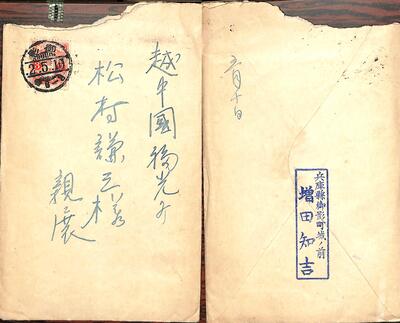 越中國福光町
松村謙三様
親展
2.5.10
五月十日
兵庫縣御影町城ノ前
増田知吉